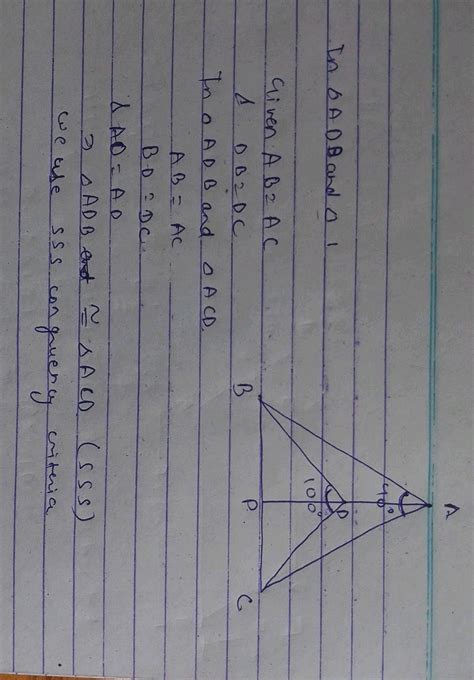 In △ADB and △
Given AB = AC
& DB = DC
In △ADB and △ACD.
AB = AC
BD = DC
& AD = AD
⇒ △ADB ≅ △ACD (SSS)
we use SSS congruency criteria
A
40°
D
100°
B
P
C